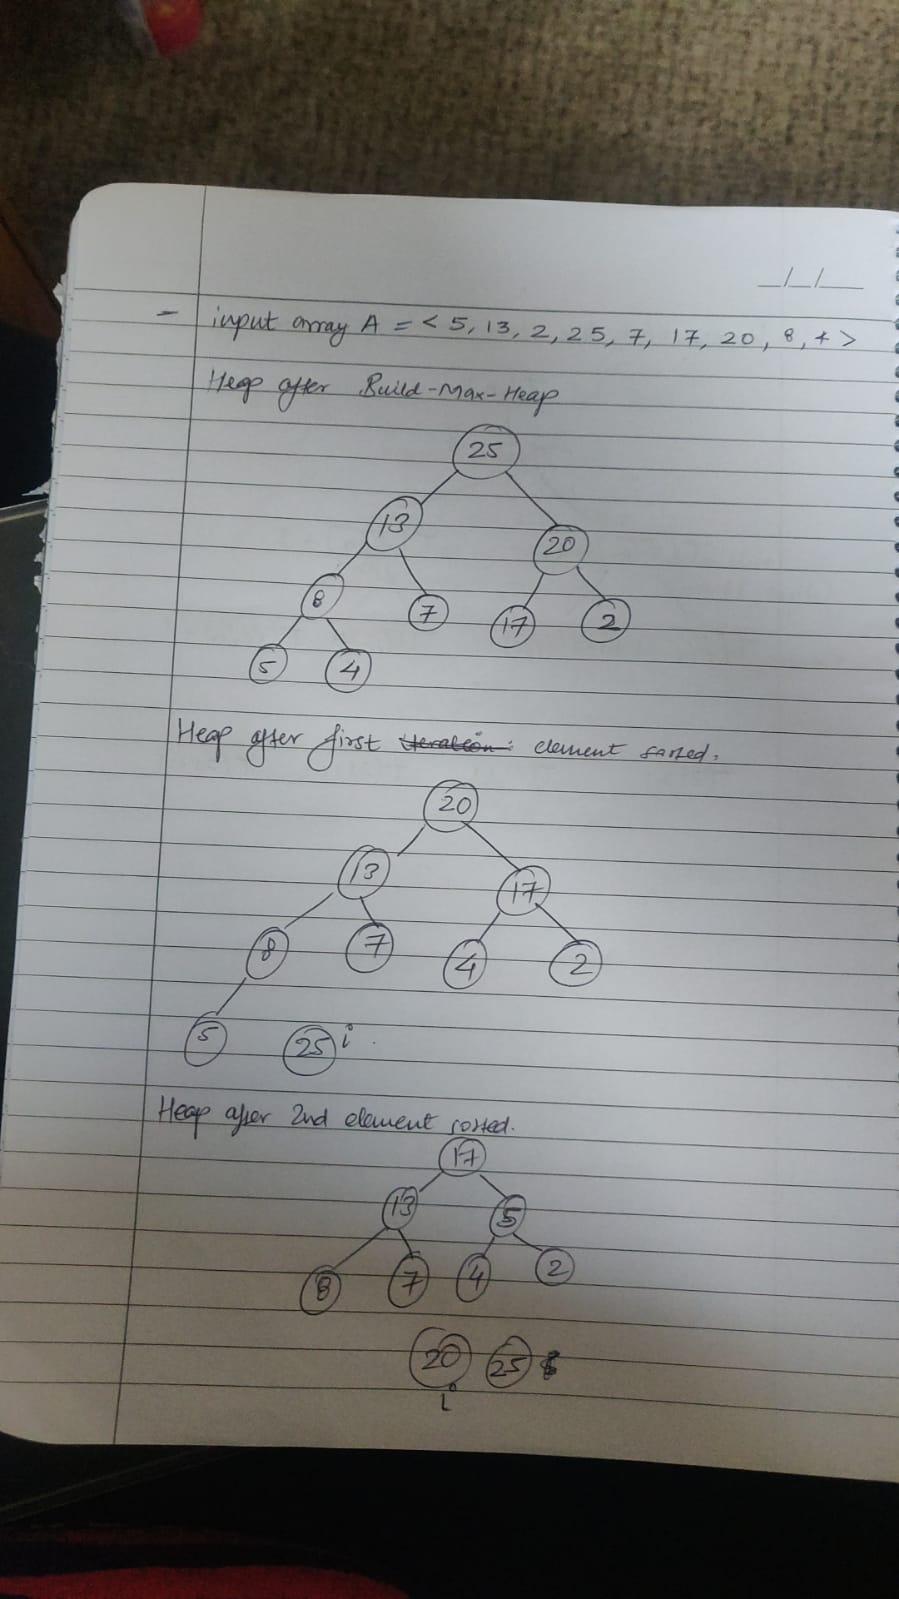 _/_/_
- input array A = < 5, 13, 2, 25, 7, 17, 20, 8, 4 >
Heap after Build-Max-Heap
25
13
20
8
7
17
2
5
4
Heap after first iteration: element sorted.
20
13
17
8
7
4
2
5
25 i
Heap after 2nd element sorted.
17
13
5
8
7
4
2
20
25
i